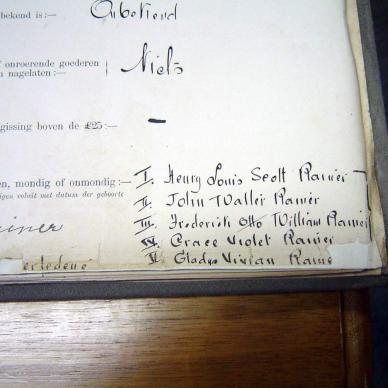 bekend is:— Onbekend
onroerende goederen
n nagelaten:— Niets
gissing boven de £25:— —
en, mondig of onmondig:— I. Henry Louis Scott Rainier
eigen voluit met datum der geboorte II. John Waller Rainier
III. Frederick Otto William Rainier
IV. Grace Violet Rainier
V. Gladys Vivian Raine
erledene